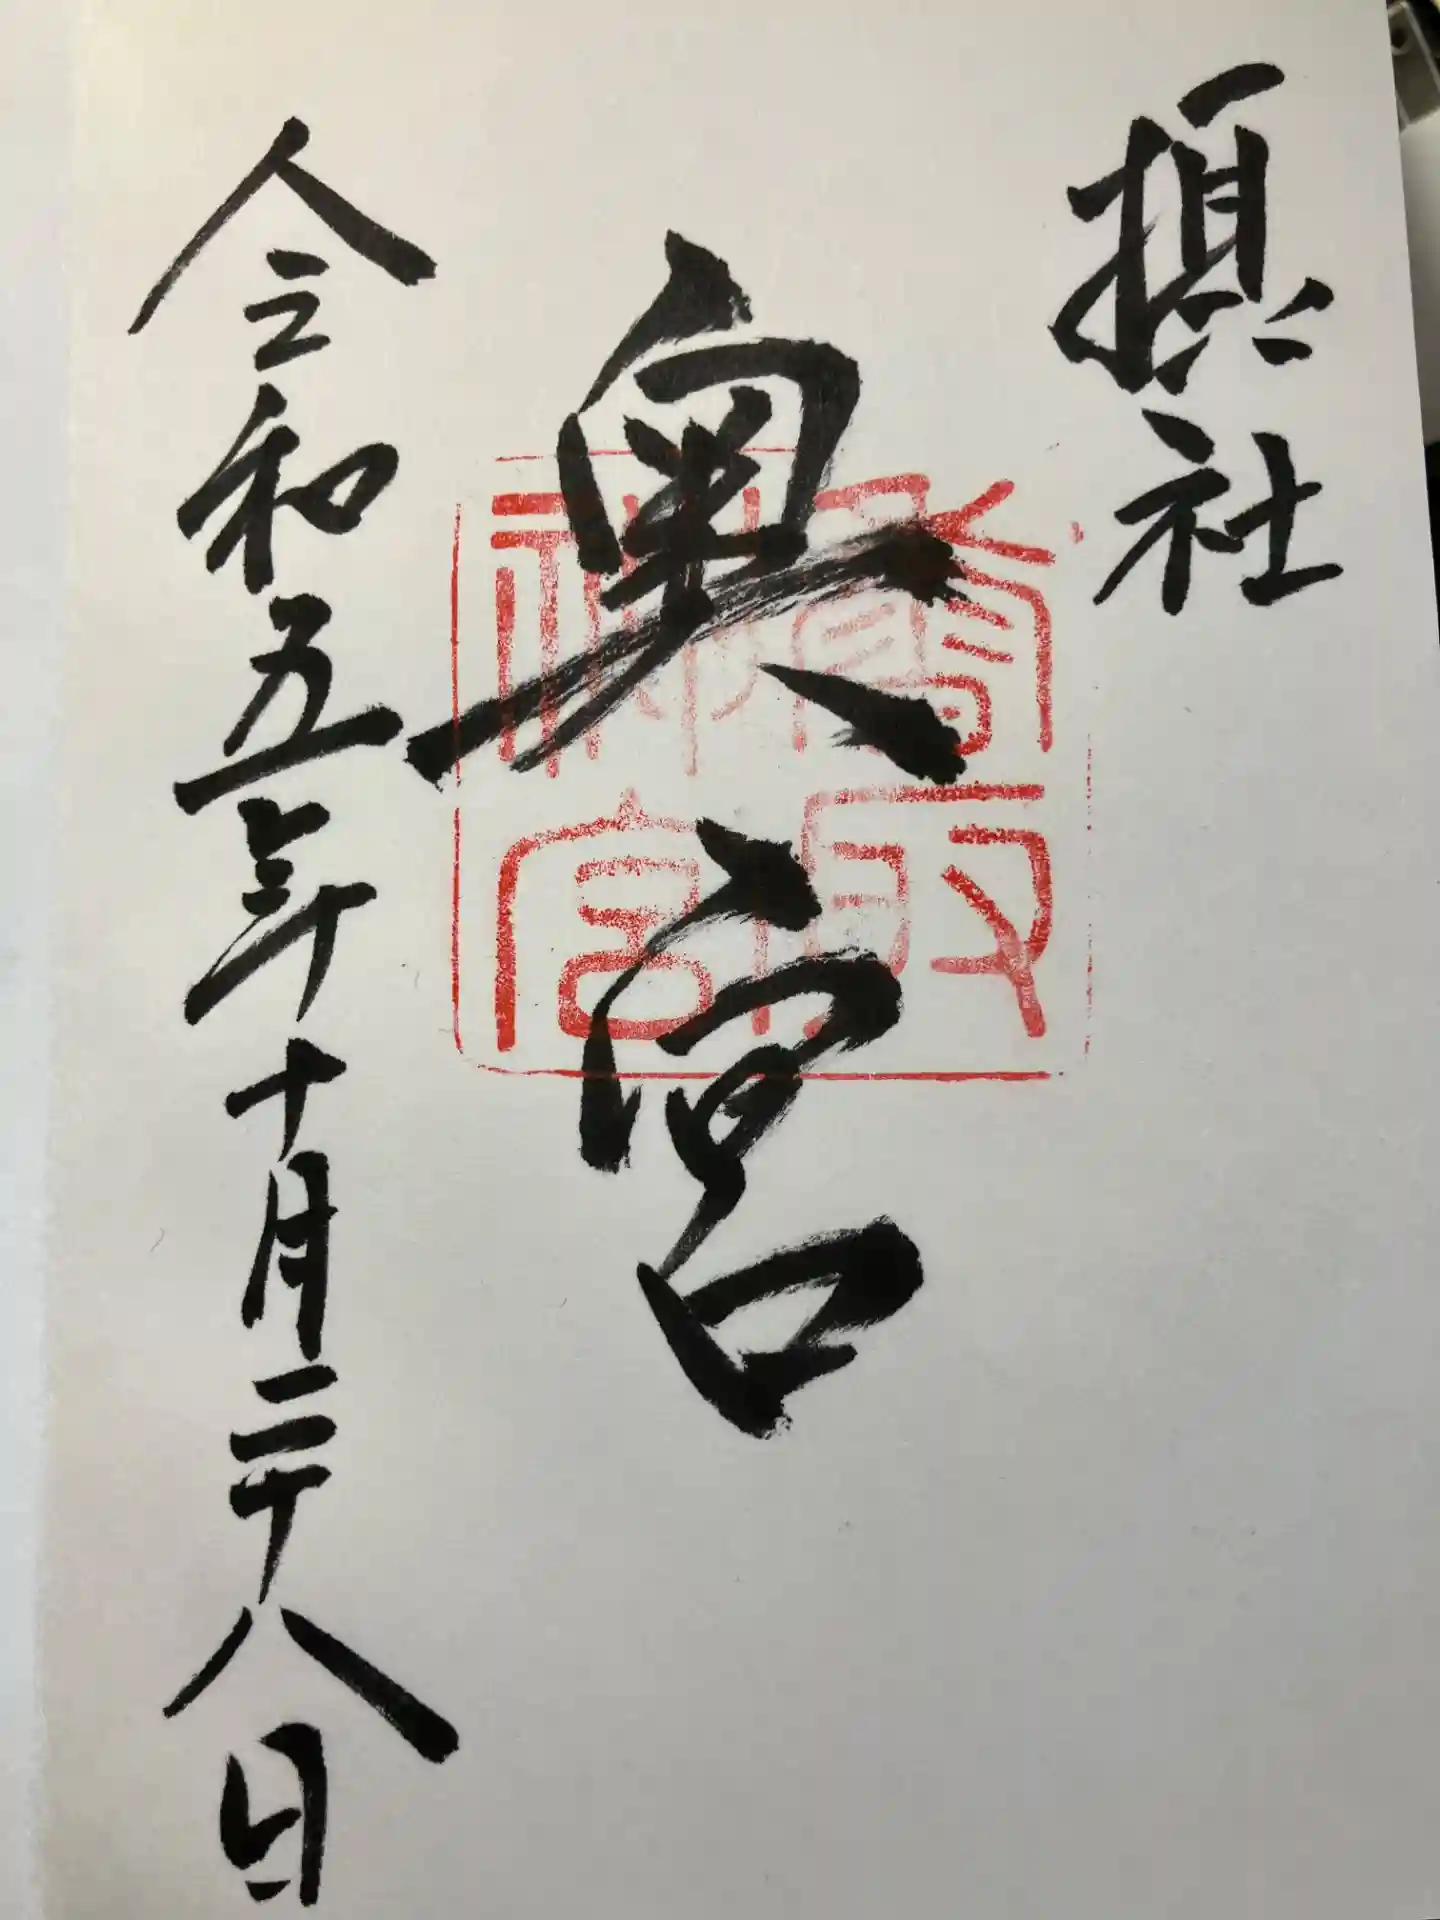 摂社
奥宮
香取
神宮
令和五年十月二十八日